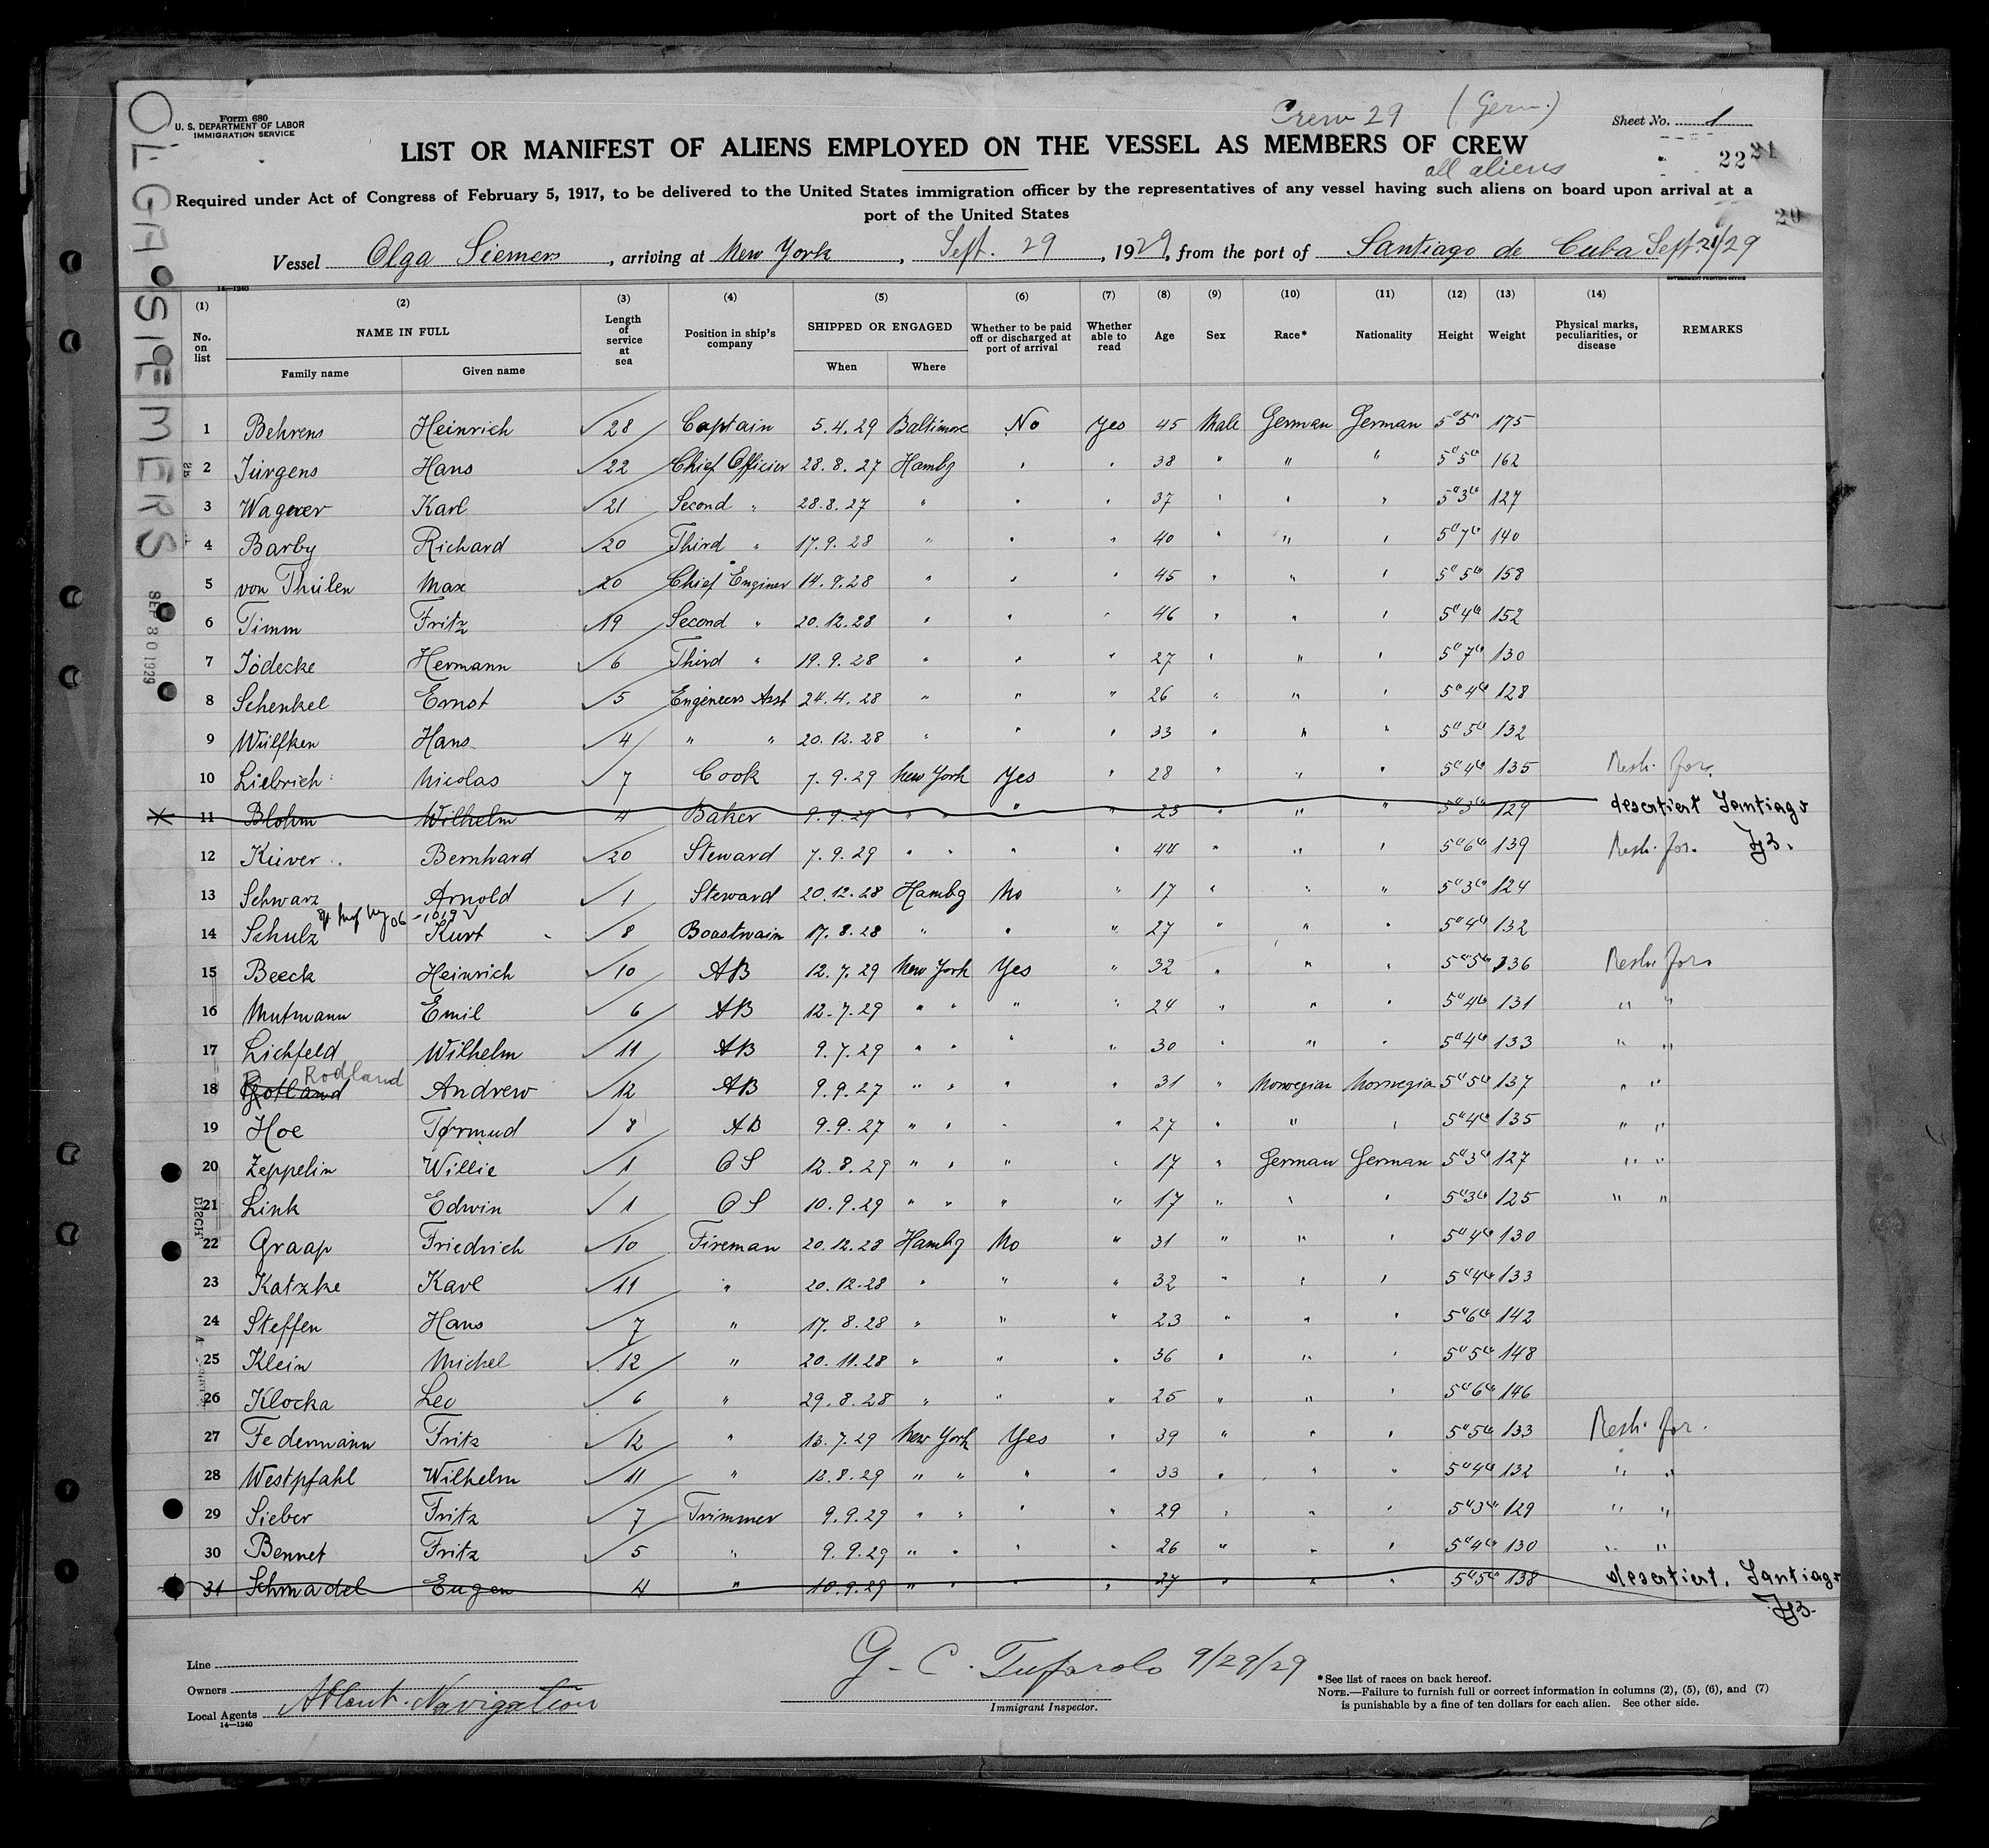 Form 680
U. S. DEPARTMENT OF LABOR
IMMIGRATION SERVICE
Crew 29 (Germ.)
Sheet No. 1
LIST OR MANIFEST OF ALIENS EMPLOYED ON THE VESSEL AS MEMBERS OF CREW
all aliens
22 21
Required under Act of Congress of February 5, 1917, to be delivered to the United States immigration officer by the representatives of any vessel having such aliens on board upon arrival at a
port of the United States
20
Vessel Olga Siemers, arriving at New York, Sept. 29, 1929, from the port of Santiago de Cuba Sept 21/29
14—1240
GOVERNMENT PRINTING OFFICE
OLGA SIEMERS
SEP 30 1929
(1) (2) (3) (4) (5) (6) (7) (8) (9) (10) (11) (12) (13) (14)
No. on list NAME IN FULL Length of service at sea Position in ship's company SHIPPED OR ENGAGED Whether to be paid off or discharged at port of arrival Whether able to read Age Sex Race* Nationality Height Weight Physical marks, peculiarities, or disease REMARKS
Family name Given name When Where
1 Behrens Heinrich 28 Captain 5.4.29 Baltimore No Yes 45 Male German German 5"5" 175
2 Jürgens Hans 22 Chief Officier 28.8.27 Hambg " " 38 " " " 5"5" 162
3 Wagener Karl 21 Second " 28.8.27 " " " 37 " " " 5"3" 127
4 Barby Richard 20 Third " 17.9.28 " " " 40 " " " 5"7" 140
5 von Thülen Max 20 Chief Enginer 14.9.28 " " " 45 " " " 5"5" 158
6 Timm Fritz 19 Second " 20.12.28 " " " 46 " " " 5"4" 152
7 Jödecke Hermann 6 Third " 19.9.28 " " " 27 " " " 5"7" 130
8 Schenkel Ernst 5 Engineers Asst 24.4.28 " " " 26 " " " 5"4" 128
9 Wülfken Hans 4 " " 20.12.28 " " " 33 " " " 5"5" 132
10 Liebrich Nicolas 7 Cook 7.9.29 New York Yes " 28 " " " 5"4" 135 Resh. for.
11 Blohm Wilhelm 4 Baker 9.9.29 " " " " 23 " " " 5"3" 129 desertiert Santiago
12 Küver Bernhard 20 Steward 7.9.29 " " " " 44 " " " 5"6" 139 Resh. for.
13 Schwarz Arnold 1 Steward 20.12.28 Hambg No " 17 " " " 5"3" 124
14 Schulz Kurt 8 Boastwain 17.8.28 " " " 27 " " " 5"4" 132
15 Beeck Heinrich 10 AB 12.7.29 New York Yes " 32 " " " 5"5" 136 Resh. for.
16 Mutmann Emil 6 AB 12.7.29 " " " " 24 " " " 5"4" 131 " "
17 Lichfeld Wilhelm 11 AB 9.7.29 " " " " 30 " " " 5"4" 133 " "
Rodland
18 Rotland Andrew 12 AB 9.9.27 " " " " 31 " Norwegian Norwegia 5"5" 137 " "
19 Hoe Tørmud 8 AB 9.9.27 " " " " 27 " " " 5"4" 135 " "
20 Zeppelin Willie 1 OS 12.8.29 " " " " 17 " German German 5"3" 127 " "
21 Link Edwin 1 OS 10.9.29 " " " " 17 " " " 5"3" 125 " "
22 Graap Friedrich 10 Fireman 20.12.28 Hambg No " 31 " " " 5"4" 130
23 Katzke Karl 11 " 20.12.28 " " " 32 " " " 5"4" 133
24 Steffen Hans 7 " 17.8.28 " " " 23 " " " 5"6" 142
25 Klein Michel 12 " 20.11.28 " " " 36 " " " 5"5" 148
26 Klocka Leo 6 " 29.8.28 " " " 25 " " " 5"6" 146
27 Federmann Fritz 12 " 13.7.29 New York Yes " 39 " " " 5"5" 133 Resh. for.
28 Westpfahl Wilhelm 11 " 12.8.29 " " " " 33 " " " 5"4" 132 " "
29 Sieber Fritz 7 Trimmer 9.9.29 " " " " 29 " " " 5"3" 129 " "
30 Bennet Fritz 5 " 9.9.29 " " " " 26 " " " 5"4" 130 " "
31 Schmadel Eugen 4 " 10.9.29 " " " " 27 " " " 5"5" 138 desertiert. Santiago
Line
Owners
Local Agents Atlant. Navigation
14—1240
G. C. Tufarolo 9/29/29
Immigrant Inspector.
*See list of races on back hereof.
NOTE.—Failure to furnish full or correct information in columns (2), (5), (6), and (7)
is punishable by a fine of ten dollars for each alien. See other side.